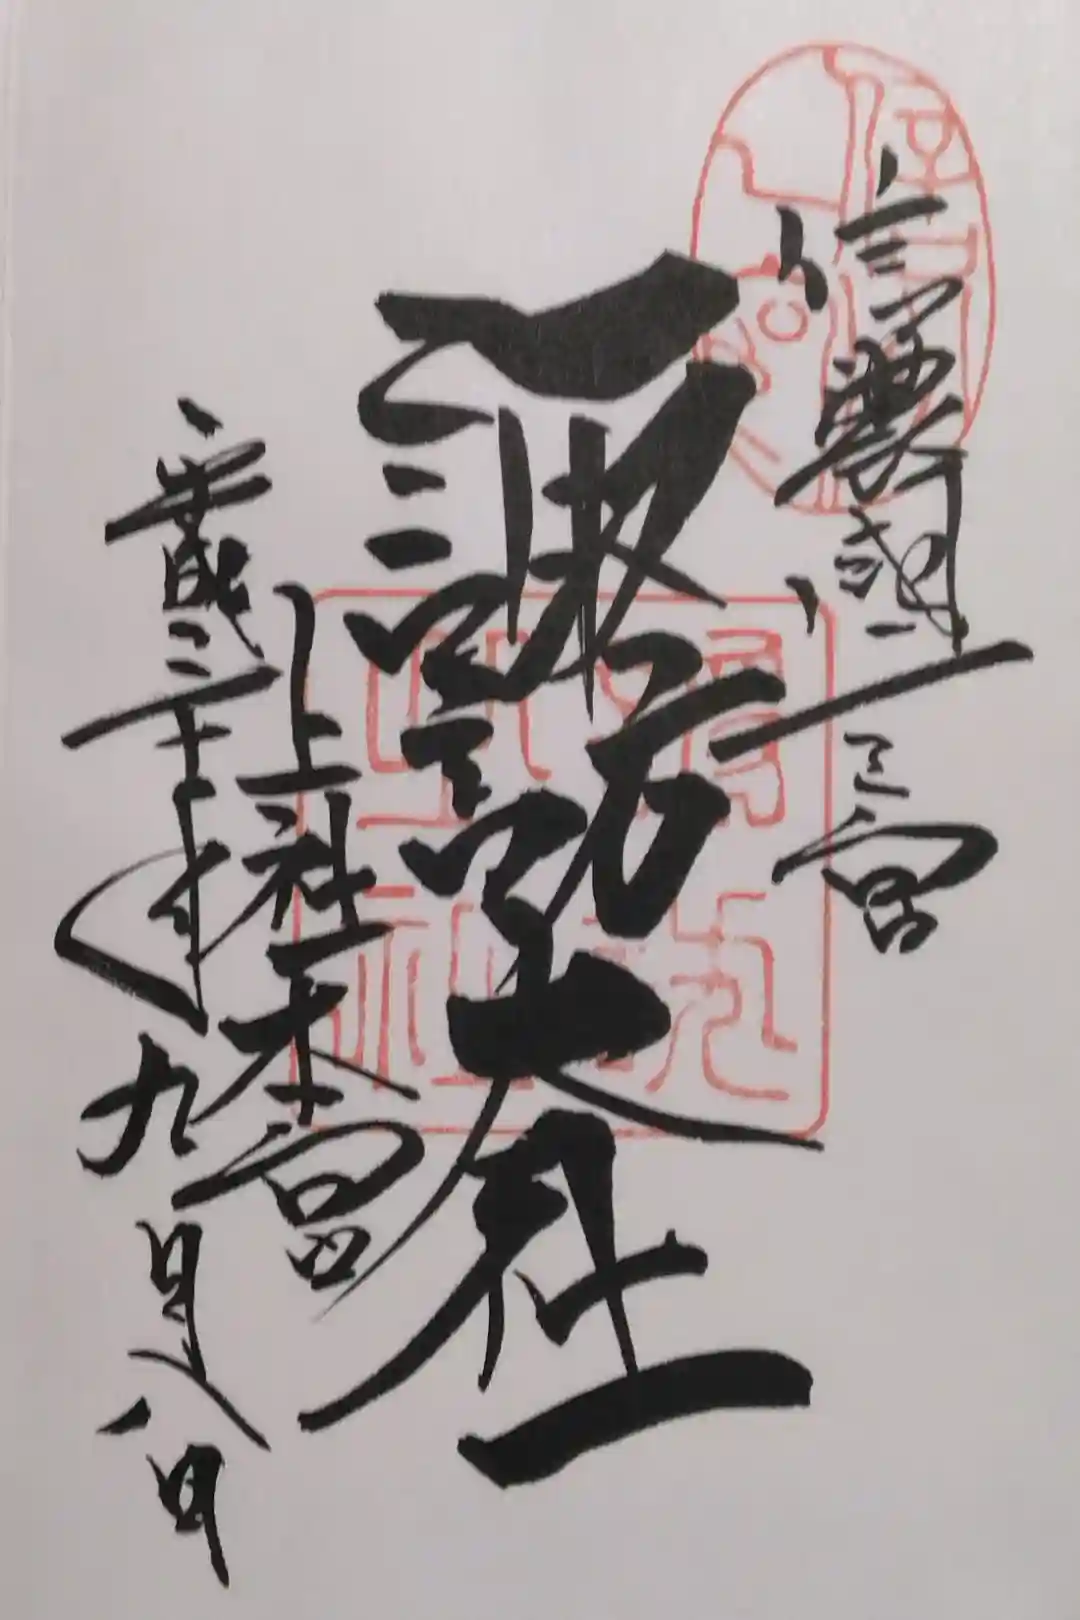 信濃国一之宮
諏訪大社
上社本宮
平成三十年九月八日